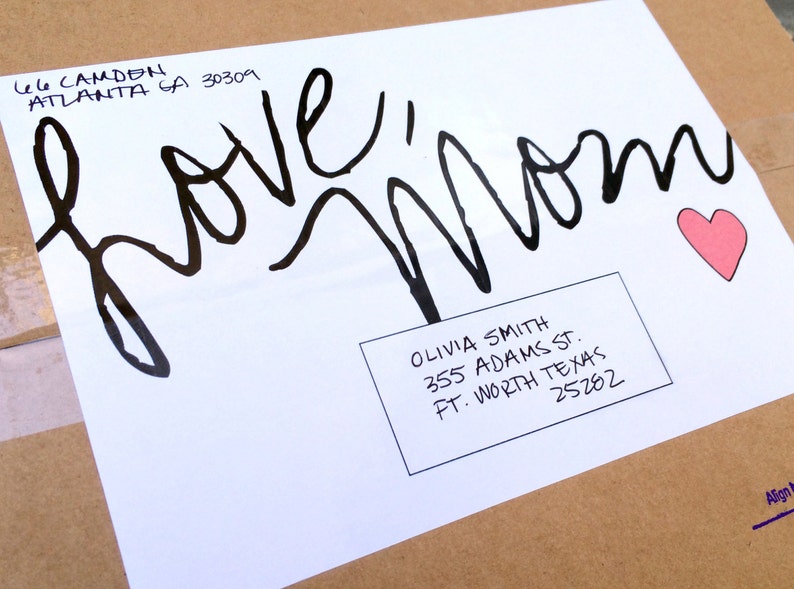 66 CAMDEN
ATLANTA GA 30309
Love,
Mom
OLIVIA SMITH
355 ADAMS ST.
FT. WORTH TEXAS
25282
Align